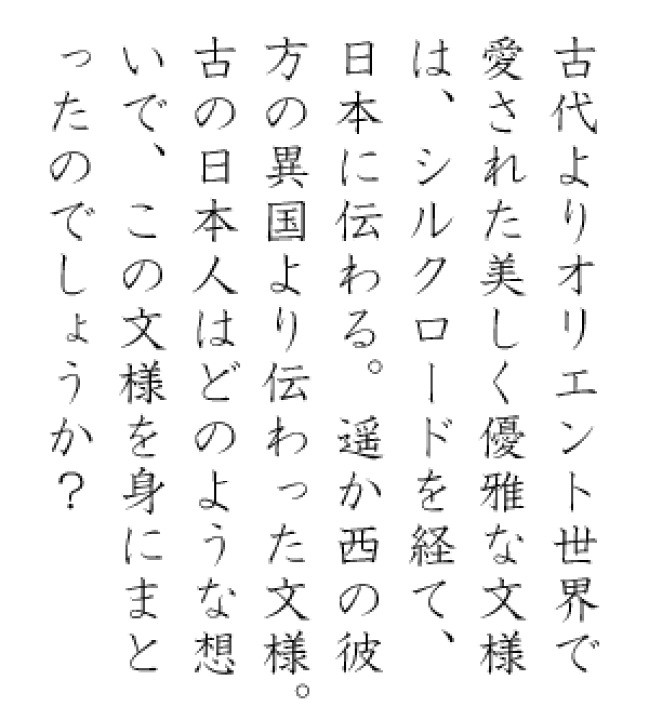 古代よりオリエント世界で
愛された美しく優雅な文様
は、シルクロードを経て、
日本に伝わる。遥か西の彼
方の異国より伝わった文様。
古の日本人はどのような想
いで、この文様を身にまと
ったのでしょうか？